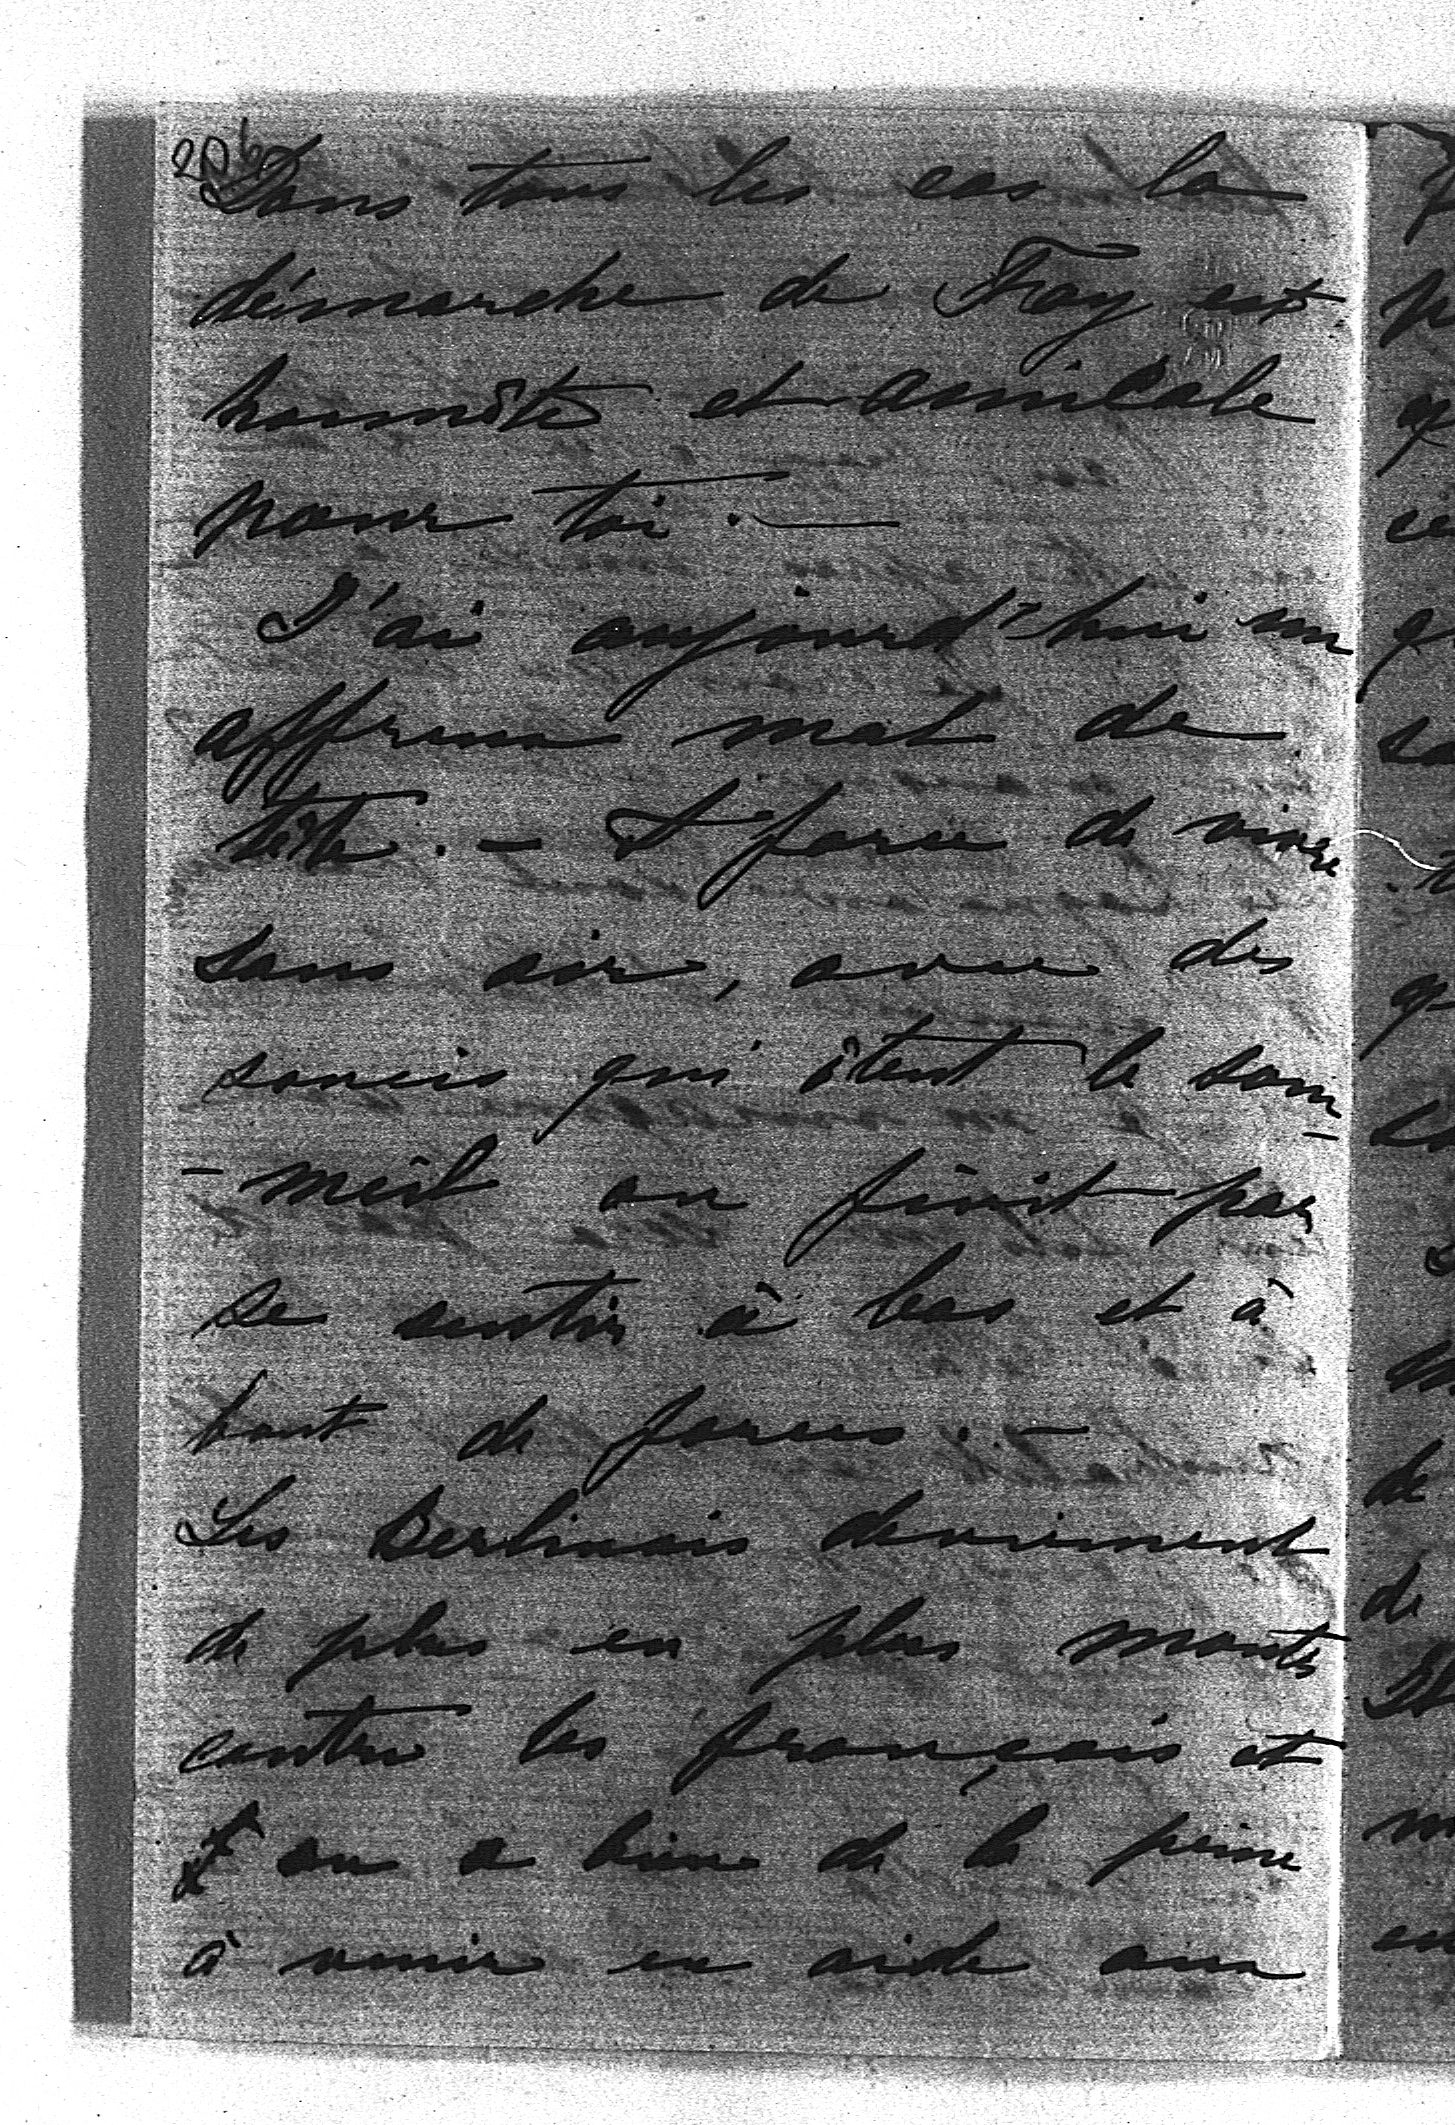 206
Dans tous les cas la
démarche de Fay est
honnête et amicale
pour toi. —
J'ai aujourd'hui un
affreux mal de
tête. — A force de vivre
sans air, avec des
soucis qui ôtent le som
- meil on finit par
se sentir à bas et à
bout de forces. —
Les Berlinois deviennent
de plus en plus montés
contre les français et
on a bien de la peine
à venir en aide aux